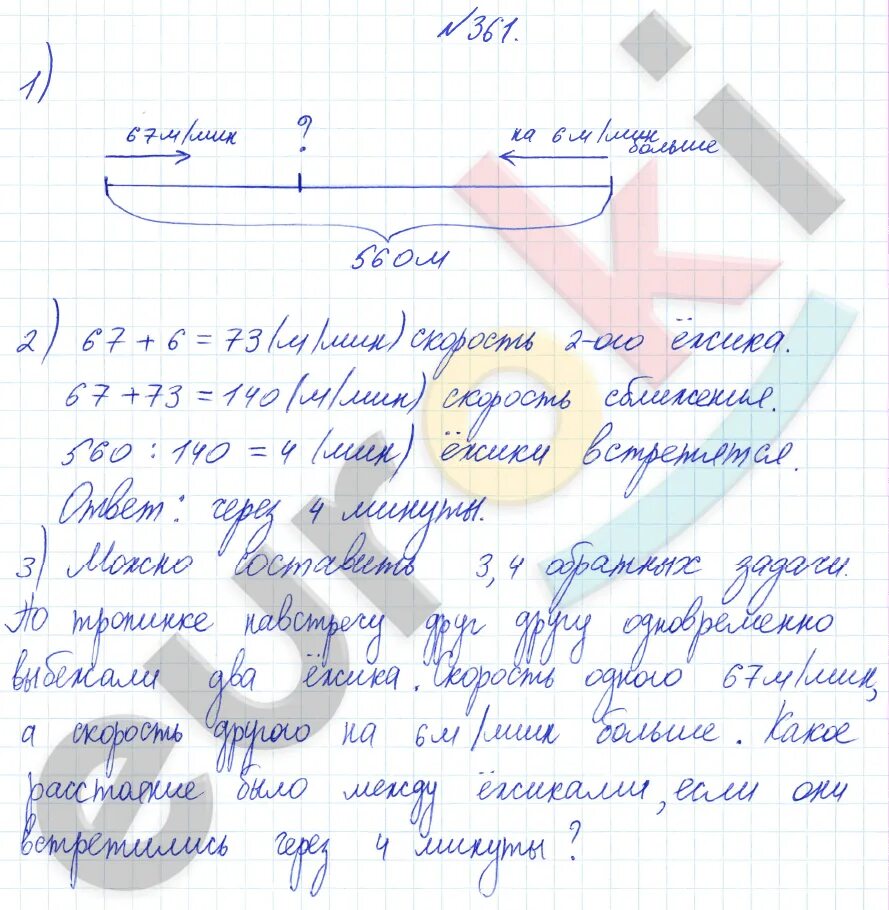 №361.
1)
67м/мин ? на 6м/мин
больше
560м
2) 67 + 6 = 73 (м/мин) скорость 2-ого ёжика.
67 + 73 = 140 (м/мин) скорость сближения.
560 : 140 = 4 (мин) ёжики встретятся.
Ответ: через 4 минуты.
3) Можно составить 3,4 обратных задачи.
По тропинке навстречу друг другу одновременно
выбежали два ёжика. Скорость одного 67м/мин,
а скорость другого на 6м/мин больше. Какое
расстояние было между ёжиками, если они
встретились через 4 минуты?
euroki